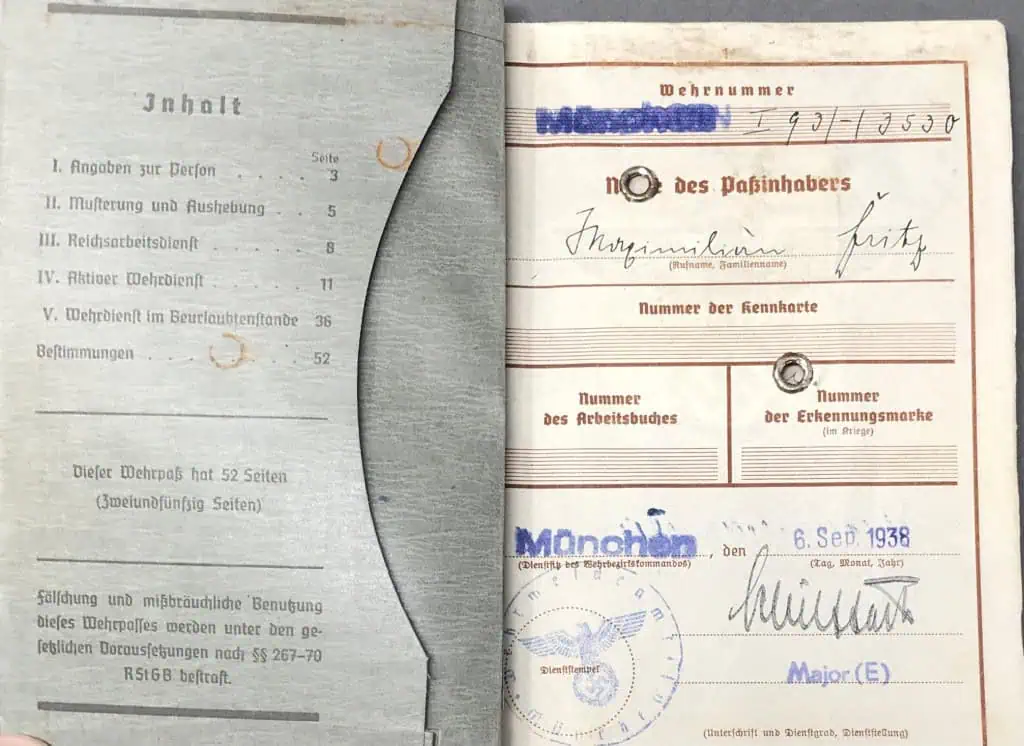 Inhalt
Seite
I. Angaben zur Person . . . . 3
II. Musterung und Aushebung . . 5
III. Reichsarbeitsdienst . . . . . . 8
IV. Aktiver Wehrdienst . . . . . . 11
V. Wehrdienst im Beurlaubtenstande 36
Bestimmungen . . . . . . 52
Dieser Wehrpaß hat 52 Seiten
(Zweiundfünfzig Seiten)
Fälschung und mißbräuchliche Benutzung
dieses Wehrpasses werden unter den ge-
setzlichen Voraussetzungen nach §§ 267–70
RStGB bestraft.
Wehrnummer
München I 93/-/3530
des Paßinhabers
Maximilian Fritz
(Rufname, Familienname)
Nummer der Kennkarte
Nummer
des Arbeitsbuches
Nummer
der Erkennungsmarke
(im Kriege)
München, den 6. Sep. 1938
(Dienstsitz des Wehrbezirkskommandos) (Tag, Monat, Jahr)
Dienststempel
Major (E)
(Unterschrift und Dienstgrad, Dienststellung)